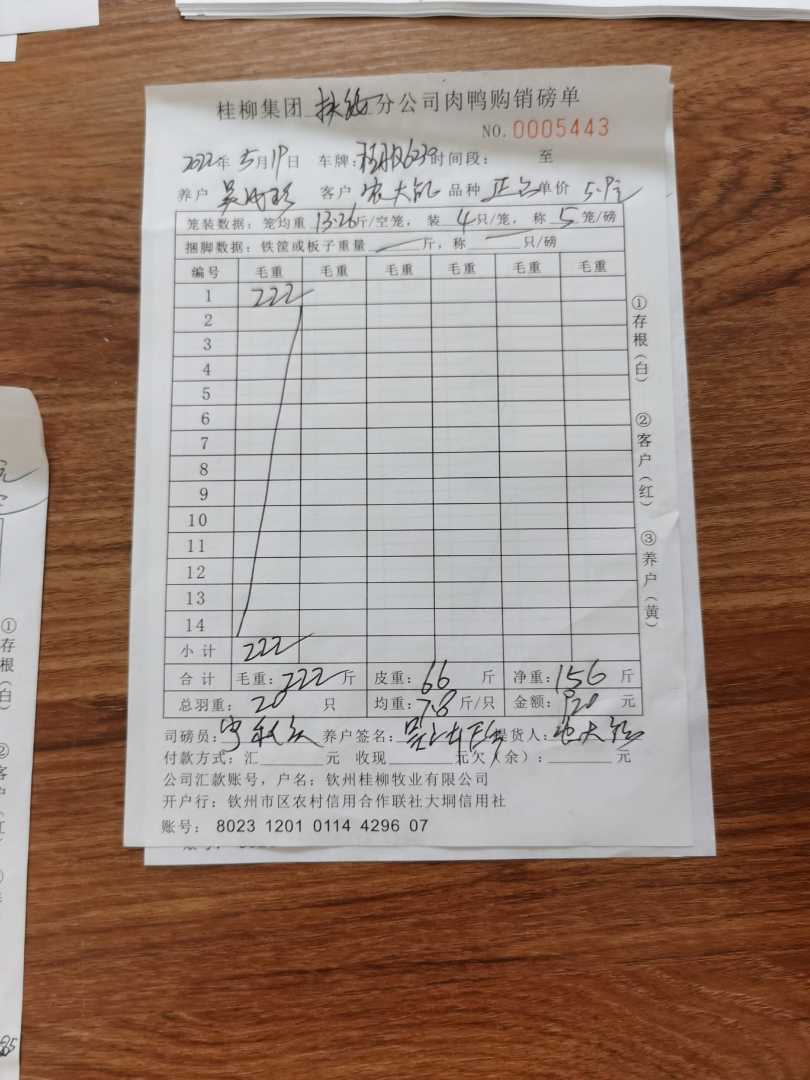 桂柳集团 扶绥 分公司肉鸭购销磅单
NO.0005443
2022年 5月19日 车牌: 时间段: 至
养户 客户 品种 正品 单价 5.9元
笼装数据: 笼均重 13.26 斤/空笼, 装 4 只/笼, 称 5 笼/磅
捆脚数据: 铁筐或板子重量 — 斤, 称 — 只/磅
编号 毛重 毛重 毛重 毛重 毛重
1 222
2
3
4
5
6
7
8
9
10
11
12
13
14
小计 222
合计 毛重: 222 斤 皮重: 66 斤 净重: 156 斤
总羽重: 20 只 均重: 7.8 斤/只 金额: 920 元
司磅员: 养户签名: 提货人:
付款方式: 汇 元 收现 元欠(余): 元
公司汇款账号, 户名: 钦州桂柳牧业有限公司
开户行: 钦州市区农村信用合作联社大垌信用社
账号: 8023 1201 0114 4296 07
①存根(白) ②客户(红) ③养户(黄)
①存根(白) ②客户